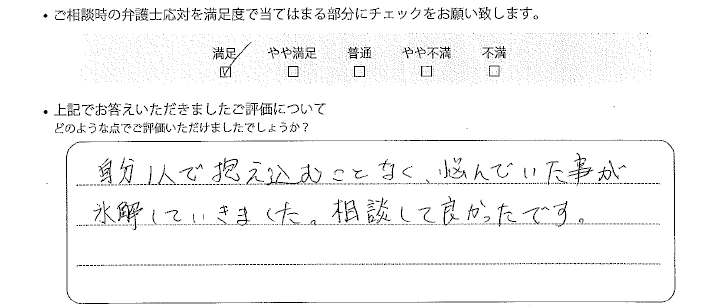 ・ご相談時の弁護士応対を満足度で当てはまる部分にチェックをお願い致します。
満足 やや満足 普通 やや不満 不満
☑ □ □ □ □
・上記でお答えいただきましたご評価について
どのような点でご評価いただけましたでしょうか？
自分1人で抱え込むことなく、悩んでいた事が
氷解していきました。相談して良かったです。